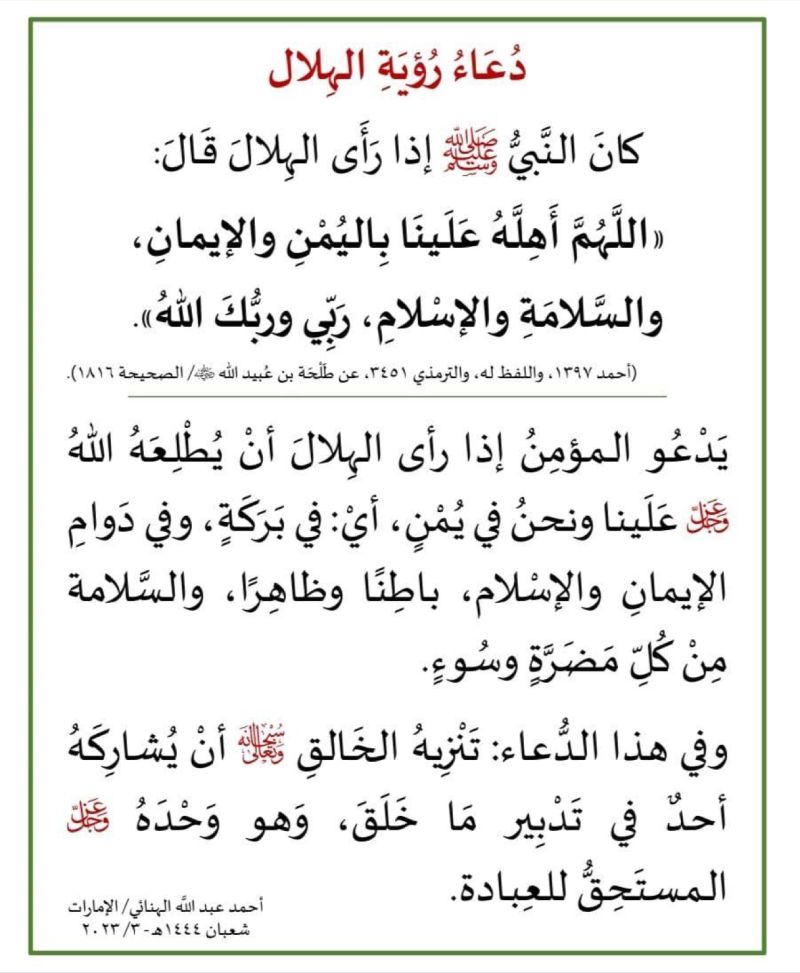 دُعَاءُ رُؤيَةِ الهِلال
كانَ النَّبيُّ ﷺ إذا رَأَى الهِلالَ قَالَ:
«اللَّهُمَّ أَهِلَّهُ عَلَينَا بِاليُمْنِ والإيمانِ،
والسَّلامَةِ والإسْلامِ، رَبِّي وربُّكَ اللهُ».
(أحمد ١٣٩٧، واللفظ له، والترمذي ٣٤٥١، عن طَلْحَة بن عُبيد الله / الصحيحة ١٨١٦).
يَدْعُو المؤمِنُ إذا رأى الهِلالَ أنْ يُطْلِعَهُ اللهُ
عَزَّ وَجَلَّ عَلَينا ونحنُ في يُمْنٍ، أيْ: في بَرَكَةٍ، وفي دَوامِ
الإيمانِ والإسْلام، باطِنًا وظاهِرًا، والسَّلامة
مِنْ كُلِّ مَضَرَّةٍ وسُوءٍ.
وفي هذا الدُّعاء: تَنْزِيهُ الخَالقِ سُبْحَانَهُ وَتَعَالَى أنْ يُشارِكَهُ
أحدٌ في تَدْبِير مَا خَلَقَ، وَهو وَحْدَهُ عَزَّ وَجَلَّ
المستَحِقُّ للعِبادة.
أحمد عبد الله الهنائي/ الإمارات
شعبان ١٤٤٤هـ - ٣/ ٢٠٢٣